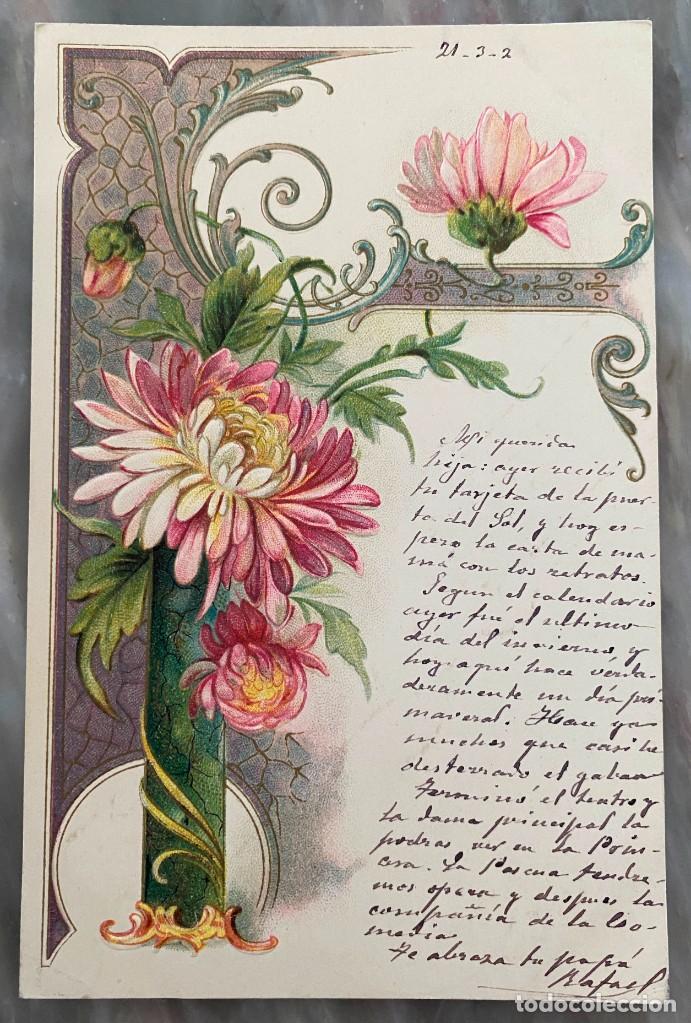 21-3-2
Mi querida
hija: ayer recibí
tu tarjeta de la puer-
ta del Sol, y hoy es-
pero la carta de ma-
má con los retratos.
Segun el calendario
ayer fué el ultimo
dia del invierno y
hoy aquí hace verda-
deramente un día pri-
maveral. Hace ya
muchos que casi he
desterrado el gaban
Terminó el teatro y
la dama principal la
podras ver en la Prin-
cesa. La Pascua tendre-
mos opera y despues la
compañía de la Co-
media
Te abraza tu papá
Rafael
todocoleccion